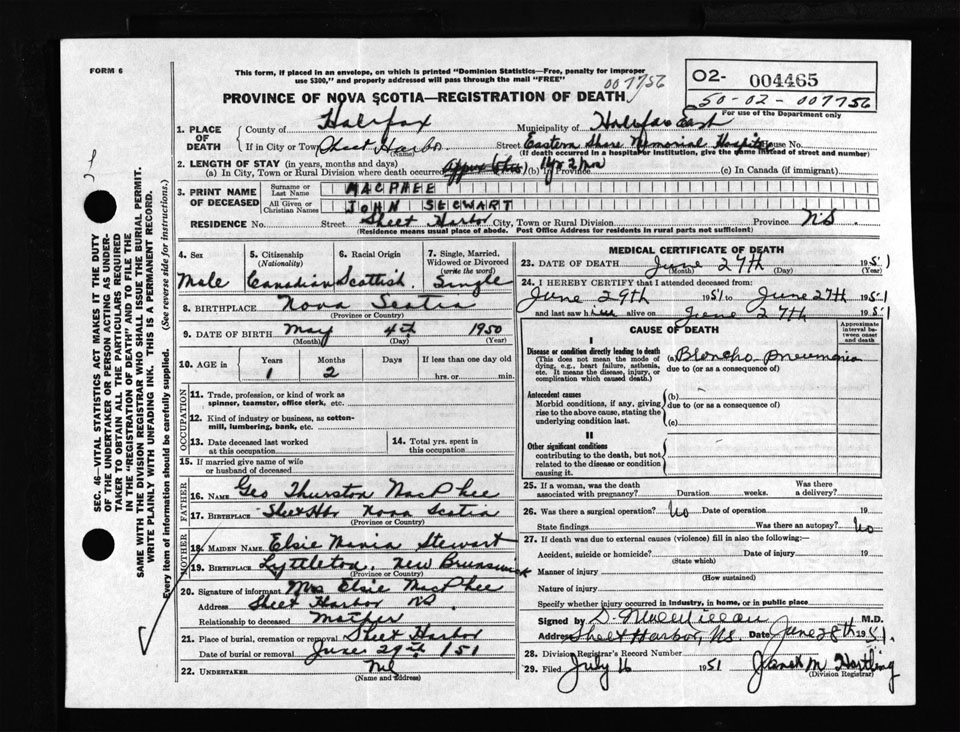 FORM 6
This form, if placed in an envelope, on which is printed "Dominion Statistics—Free, penalty for improper
use $300," and properly addressed will pass through the mail "FREE"
007756
PROVINCE OF NOVA SCOTIA—REGISTRATION OF DEATH
O2- 004465
50-02-007756
For use of the Department only
1. PLACE OF DEATH
County of Halifax Municipality of Halifax East
If in City or Town Sheet Harbor (Name) Street Eastern Shore Memorial Hospital House No.
(If death occurred in a hospital or institution, give the name instead of street and number)
2. LENGTH OF STAY (in years, months and days)
(a) In City, Town or Rural Division where death occurred (b) In Province 1 yr 2 mo (c) In Canada (if immigrant)
3. PRINT NAME OF DECEASED
Surname or Last Name MACPHEE
All Given or Christian Names JOHN STEWART
RESIDENCE No. Street Sheet Harbor City, Town or Rural Division Province N.S
(Residence means usual place of abode. Post Office Address for residents in rural parts not sufficient)
4. Sex
Male
5. Citizenship (Nationality)
Canadian
6. Racial Origin
Scottish
7. Single, Married, Widowed or Divorced (write the word)
Single
8. BIRTHPLACE Nova Scotia
(Province or Country)
9. DATE OF BIRTH May 4th 1950
(Month) (Day) (Year)
10. AGE in Years Months Days If less than one day old
1 2 hrs. or min.
OCCUPATION
11. Trade, profession, or kind of work as
spinner, teamster, office clerk, etc.
12. Kind of industry or business, as cotton-
mill, lumbering, bank, etc.
13. Date deceased last worked
at this occupation
14. Total yrs. spent in
this occupation
15. If married give name of wife
or husband of deceased
FATHER
16. NAME Geo Thurston MacPhee
17. BIRTHPLACE Sheet Hbr Nova Scotia
(Province or Country)
MOTHER
18. MAIDEN NAME Elsie Stewart
19. BIRTHPLACE Lyttleton, New Brunswick
(Province or Country)
20. Signature of informant Mrs Elsie MacPhee
Address Sheet Harbor N.S.
Relationship to deceased Mother
21. Place of burial, cremation or removal Sheet Harbor
Date of burial or removal June 29th /51
22. UNDERTAKER Nil
(Name and Address)
MEDICAL CERTIFICATE OF DEATH
23. DATE OF DEATH June 27th 1951
(Month) (Day) (Year)
24. I HEREBY CERTIFY that I attended deceased from:
June 29th 1951 to June 27th 1951
and last saw him alive on June 27th 1951
CAUSE OF DEATH
Approximate interval between onset and death
I
Disease or condition directly leading to death
(This does not mean the mode of
dying, e.g., heart failure, asthenia,
etc. It means the disease, injury, or
complication which caused death.)
(a) Broncho pneumonia
due to (or as a consequence of)
Antecedent causes
Morbid conditions, if any, giving
rise to the above cause, stating the
underlying condition last.
(b)
due to (or as a consequence of)
(c)
II
Other significant conditions
contributing to the death, but not
related to the disease or condition
causing it.
25. If a woman, was the death
associated with pregnancy? Duration weeks. Was there a delivery?
26. Was there a surgical operation? No Date of operation 19
State findings Was there an autopsy? No
27. If death was due to external causes (violence) fill in also the following:—
Accident, suicide or homicide? Date of injury 19
(State which)
Manner of injury
(How sustained)
Nature of injury
Specify whether injury occurred in industry, in home, or in public place
Signed by D. MacMillan M.D.
Address Sheet Harbor, N.S. Date June 28th 1951.
28. Division Registrar's Record Number
29. Filed July 16 1951 Janet M Hartling
(Division Registrar)
SEC. 46—VITAL STATISTICS ACT MAKES IT THE DUTY
OF THE UNDERTAKER OR PERSON ACTING AS UNDER-
TAKER TO OBTAIN ALL THE PARTICULARS REQUIRED
IN THE "REGISTRATION OF DEATH" AND TO FILE THE
SAME WITH THE DIVISION REGISTRAR WHO SHALL ISSUE THE BURIAL PERMIT.
WRITE PLAINLY WITH UNFADING INK. THIS IS A PERMANENT RECORD.
Every item of information should be carefully supplied. (See reverse side for instructions.)